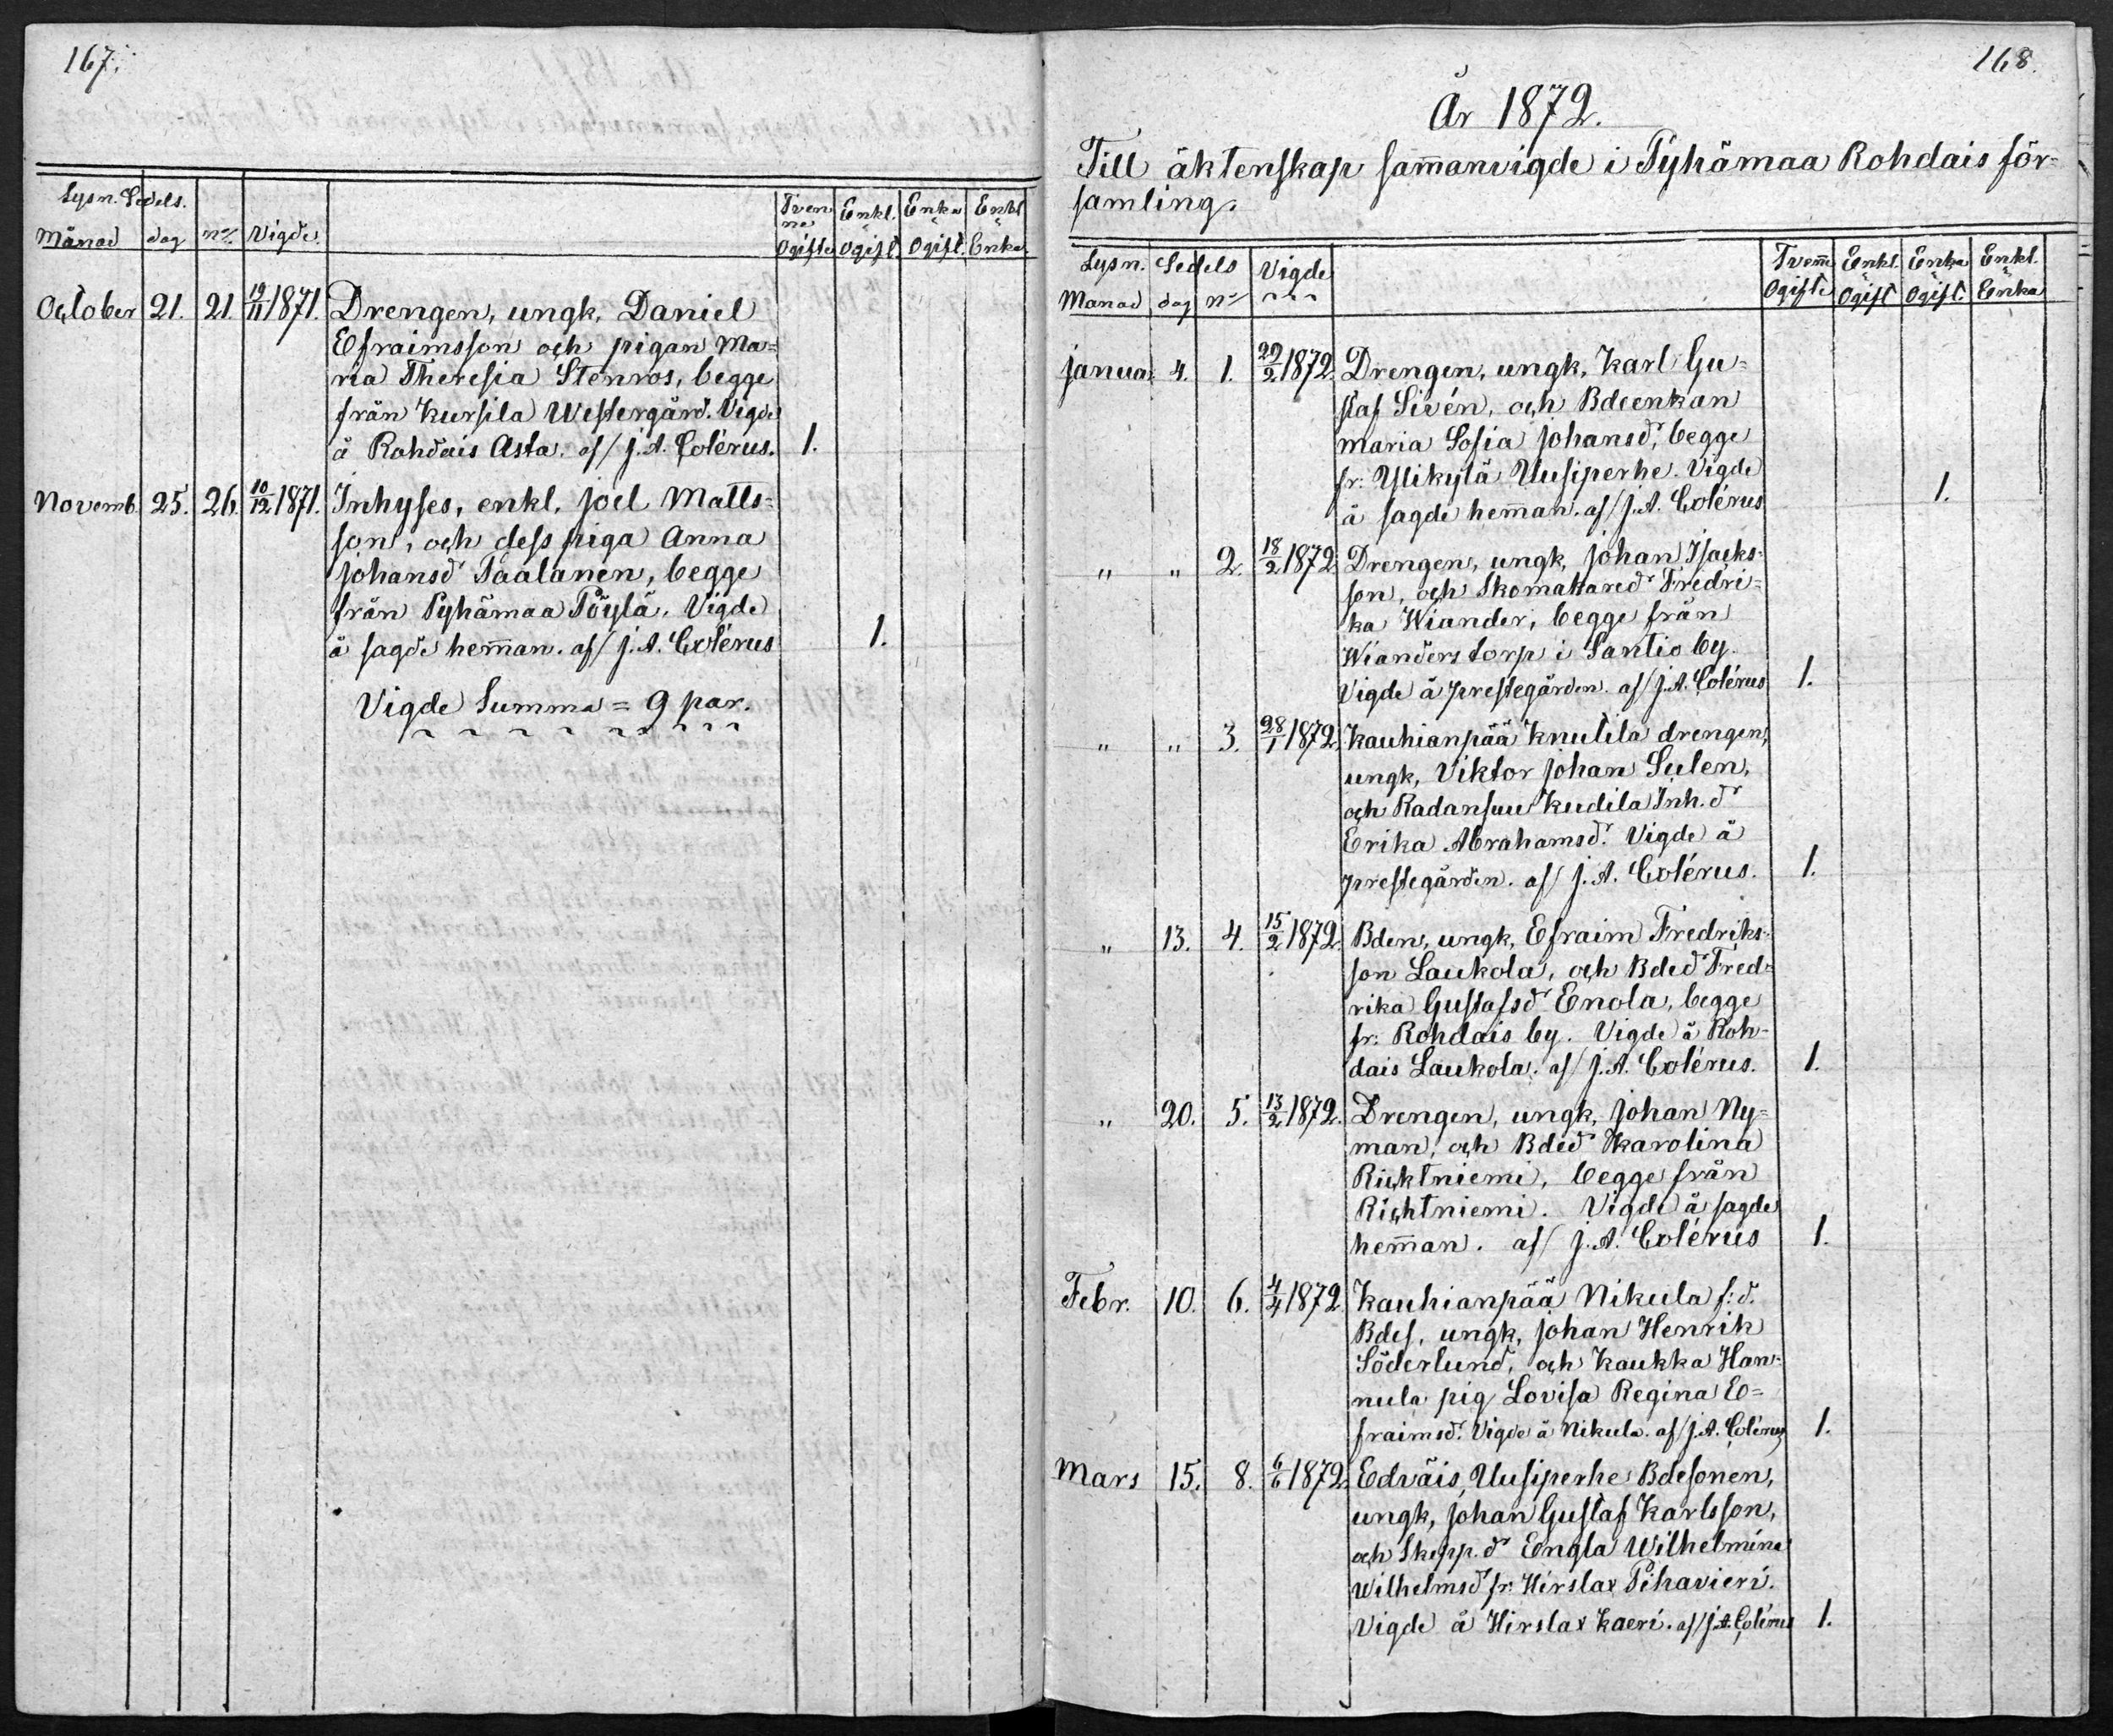 167.
Lysn. Sedels.
Månad dag No. Vigde. Tvenne Ogifte Enkl. Ogift. Enka Ogift. Enkl Enka
October 21. 21. 19/11 1871. Drengen, ungk, Daniel
Efraimsson och pigan Ma=
ria Theresia Stenros, begge
från Kursila Westergård. Vigde
å Rohdais Asta. af/ J. A. Colérus. 1.
Novemb. 25. 26. 10/12 1871. Inhyses, enkl, Joel Matts=
son, och dess piga Anna
Johansdr Taalanen, begge
från Pyhämaa Töylä. Vigde
å sagde hem̄an. af/ J. A. Colérus 1.
Vigde Summa = 9 par.
168.
År 1872.
Till äktenskap sam̄anvigde i Pyhämaa Rohdais för=
samling.
Lysn. Sedels Vigde Tvem̄e Enkl. Enka Enkl.
Månad dag No Ogifte Ogift Ogift. Enka
Januar 4. 1. 29/2 1872. Drengen, ungk, Karl Gu=
staf Sirén, och Bdeenkan
Maria Sofia Johansdr, begge
fr: Ylikylä Uusiperhe. Vigde
å sagde hem̄an. af/ J. A. Colérus 1.
" " 2. 18/2 1872. Drengen, ungk, Johan Isacks=
son, och Skomakaredr Fredri=
ka Wiander, begge från
Wianders torp i Santio by.
Vigde å prestegården. af/ J. A. Colérus 1.
" " 3. 28/1 1872. Kauhianpää Knutila drengen,
ungk, Viktor Johan Sulen,
och Radansuu Kudila Inh. dr
Erika Abrahamsdr. Vigde å
prestegården. af/ J. A. Colérus. 1.
" 13. 4. 15/2 1872. Bden, ungk, Efraim Fredriks=
son Laukola, och Bdedr Fred=
rika Gustafsdr Enola, begge
fr: Rohdais by. Vigde å Roh=
dais Laukola. af/ J. A. Colérus. 1.
" 20. 5. 13/2 1872. Drengen, ungk, Johan Ny=
man, och Bdedr Karolina
Richtniemi, begge från
Richtniemi. Vigde å sagde
hem̄an. af/ J. A. Colérus 1.
Febr. 10. 6. 4/4 1872. Kauhianpää Nikula f: d.
Bdes, ungk, Johan Henrik
Söderlund, och Kaukka Han=
nula pig Lovisa Regina E=
fraimsdr. Vigde å Nikula. af/ J. A. Colérus 1.
Mars 15. 8. 6/6 1872. Edväis, Uusiperhe Bdesonen,
ungk, Johan Gustaf Karlsson,
och Skepp. dr Engla Wilhelmina
Wilhelmsdr fr: Hirslax Pihavieri.
Vigde å Hirslax Kaeri. af/ J. A. Colérus 1.